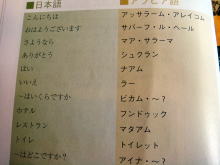 日本語 アラビア語
こんにちは アッサラーム・アレイコム
おはようございます サバーフ・ル・ヘール
さようなら マア・サラーマ
ありがとう シュクラン
はい ナアム
いいえ ラー
〜はいくらですか ビカム・〜?
ホテル フンドゥック
レストラン マタアム
トイレ トイレット
〜はどこですか? アイナ・〜?